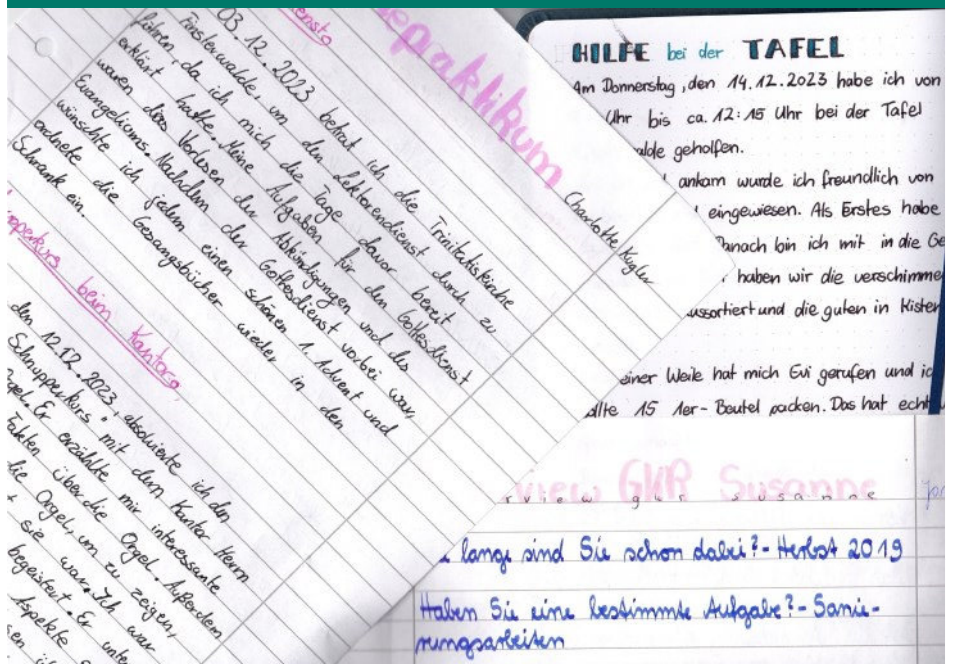 epraktikum
Charlotte Kugler
03.12.2023 betrat ich die Trinitatiskirche
Fürstenwalde, um den Lektorendienst durch zu
führen, da ich mich die Tage davor bereit
erklärt hatte. Meine Aufgaben für den Gottesdienst
waren das Vorlesen der Abkündigungen und des
Evangeliums. Nachdem der Gottesdienst vorbei war,
wünschte ich jedem einen schönen 1. Advent und
ordnete die Gesangsbücher wieder in den
Schrank ein.
pperkurs beim Kantor
den 12.12.2023, absolvierte ich den
Schnupperkurs" mit dem Kantor Herrn
Er erzählte mir interessante
Fakten über die Orgel. Außerdem
die Orgel, um zu zeigen,
sie war. Ich war
begeistert. Er unte
Aspekte
HILFE bei der TAFEL
Am Donnerstag, den 14.12.2023 habe ich von
Uhr bis ca. 12:15 Uhr bei der Tafel
alde geholfen.
ankam wurde ich freundlich von
eingewiesen. Als Erstes habe
Danach bin ich mit in die Ge
haben wir die verschimme
aussortiert und die guten in Kisten
einer Weile hat mich Evi gerufen und ic
llte 15 1er-Beutel packen. Das hat echt
rview GKR Susanne
rview gkr susanne
lange sind Sie schon dabei? - Herbst 2019
Haben Sie eine bestimmte Aufgabe? - Sanie-
rungsarbeiten